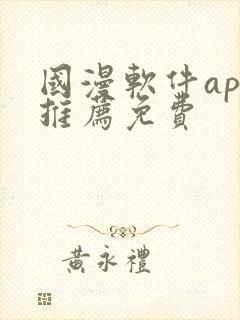 國漫軟件ap
推薦免費
黃永禮